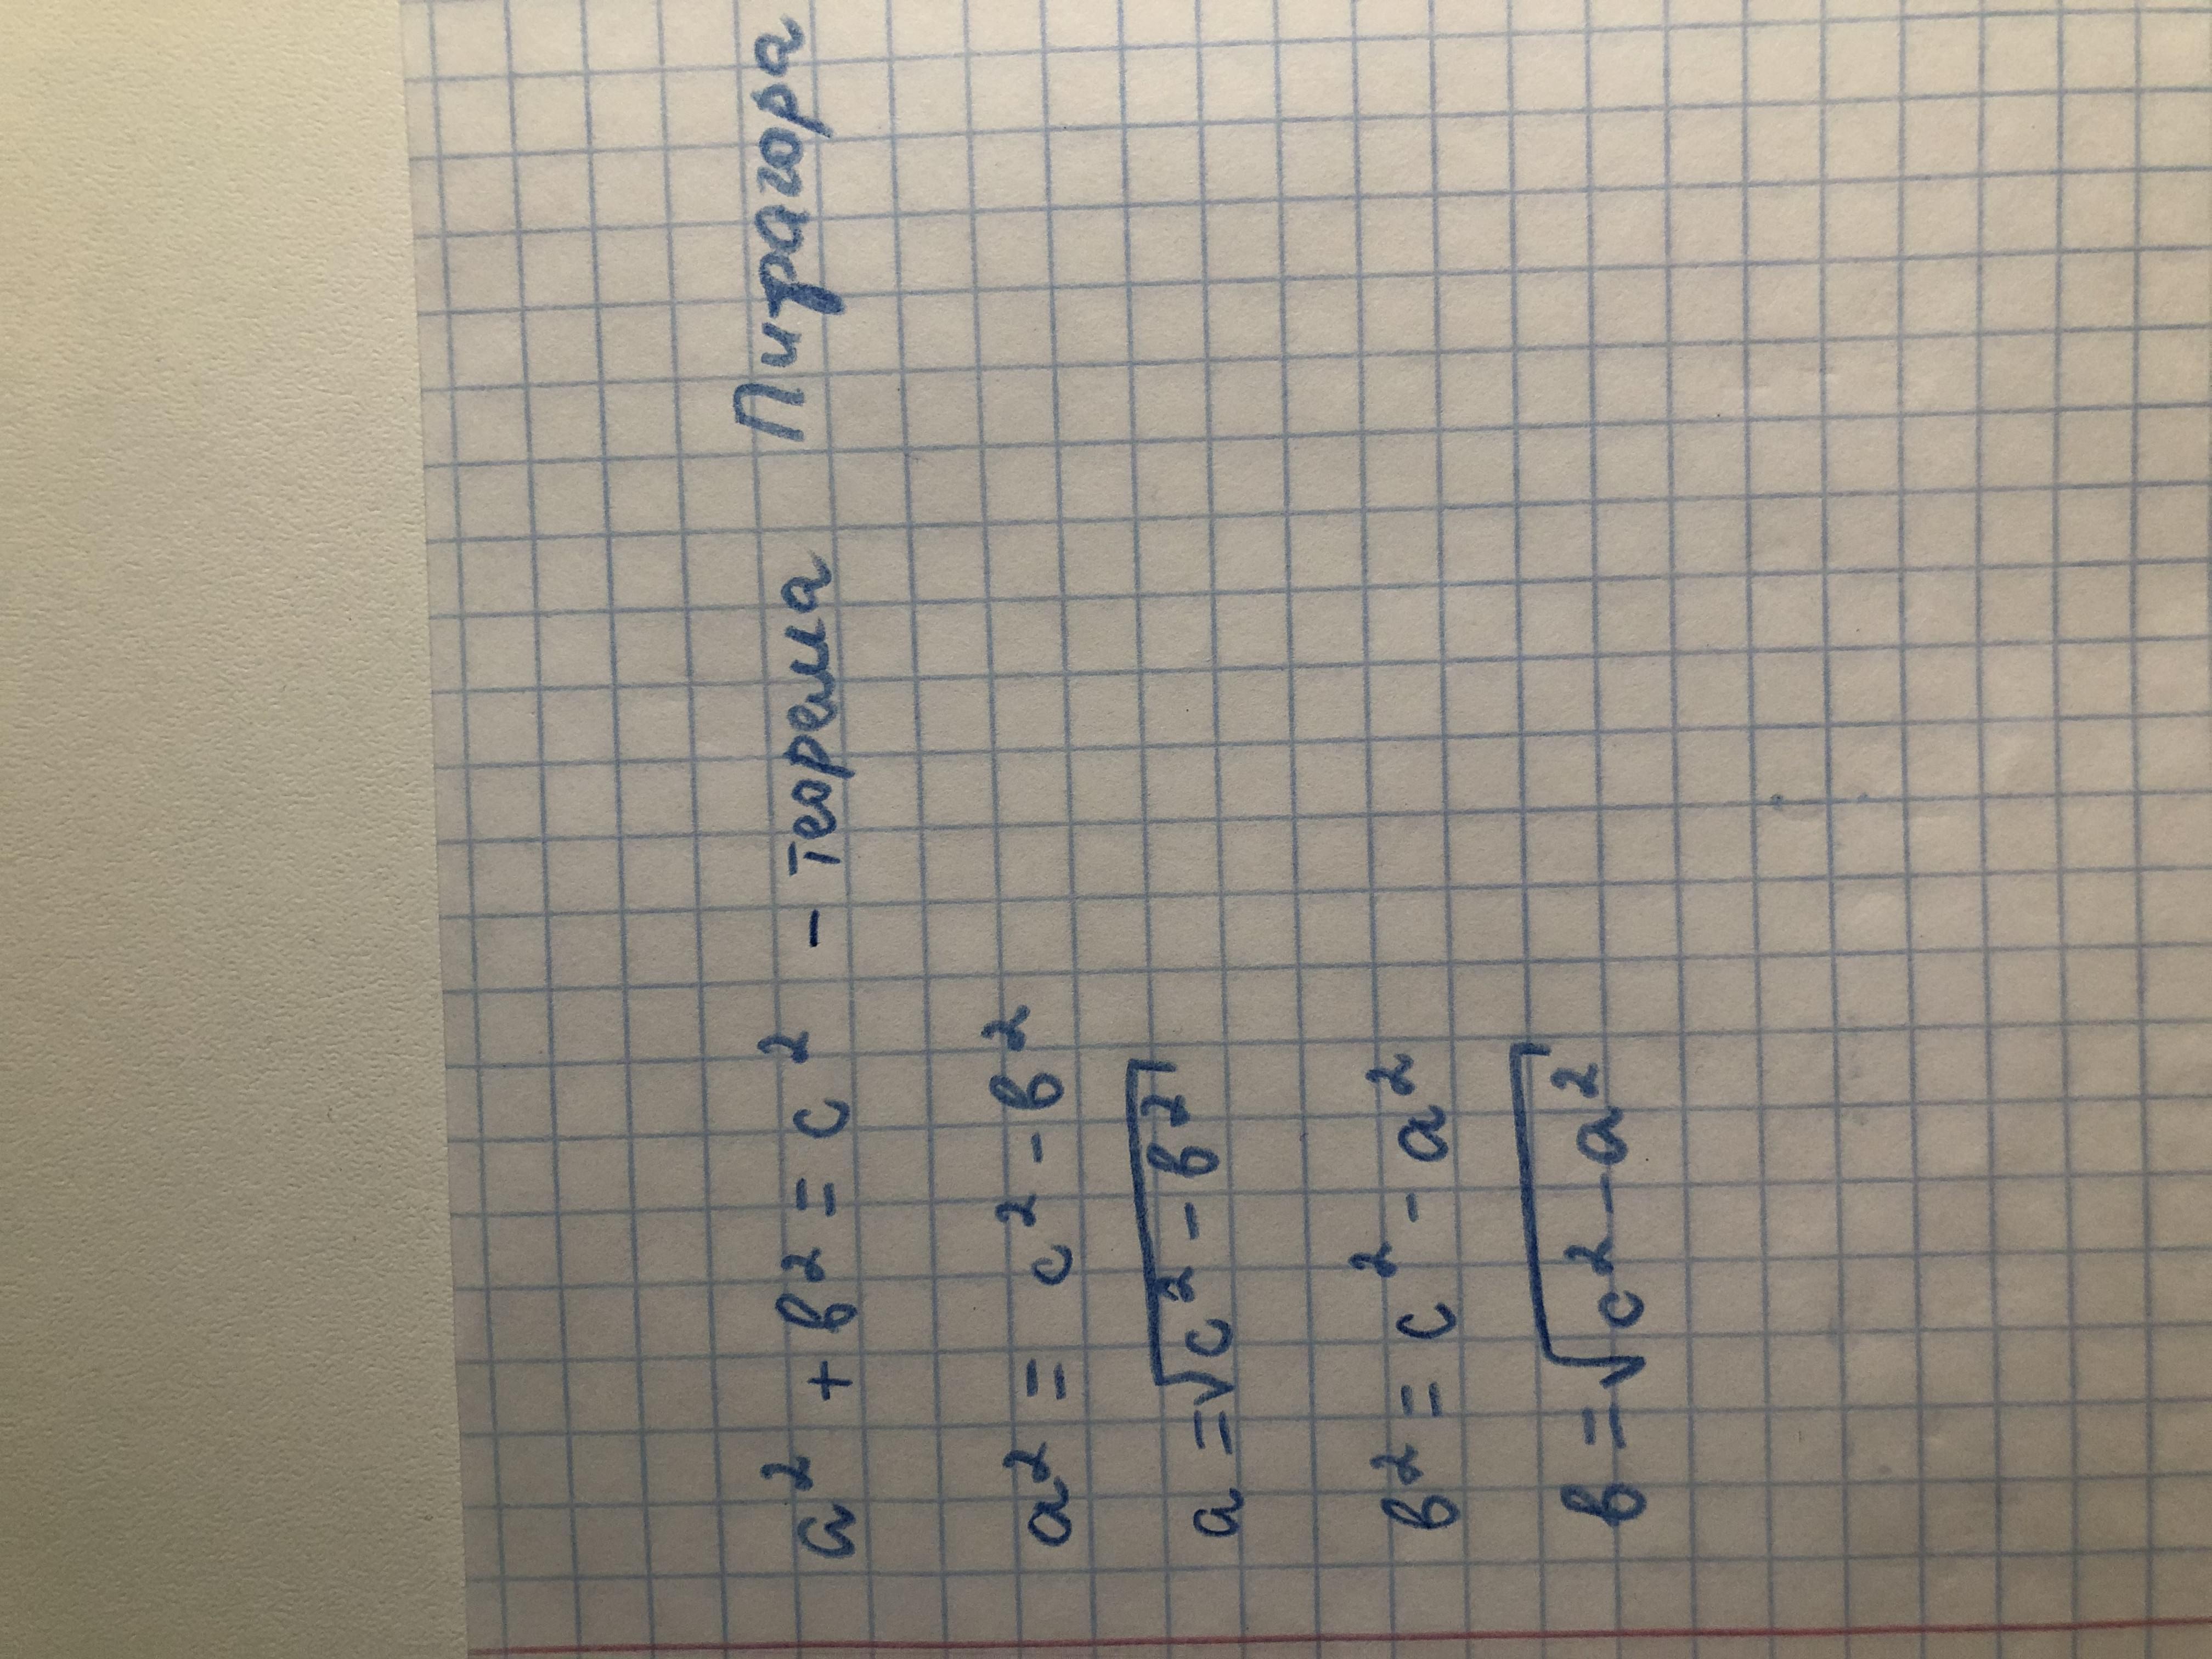 a² + в² = c² - теорема Пифагора
a² = c² - в²
a = √c² - в²
в² = c² - a²
в = √c² - a²